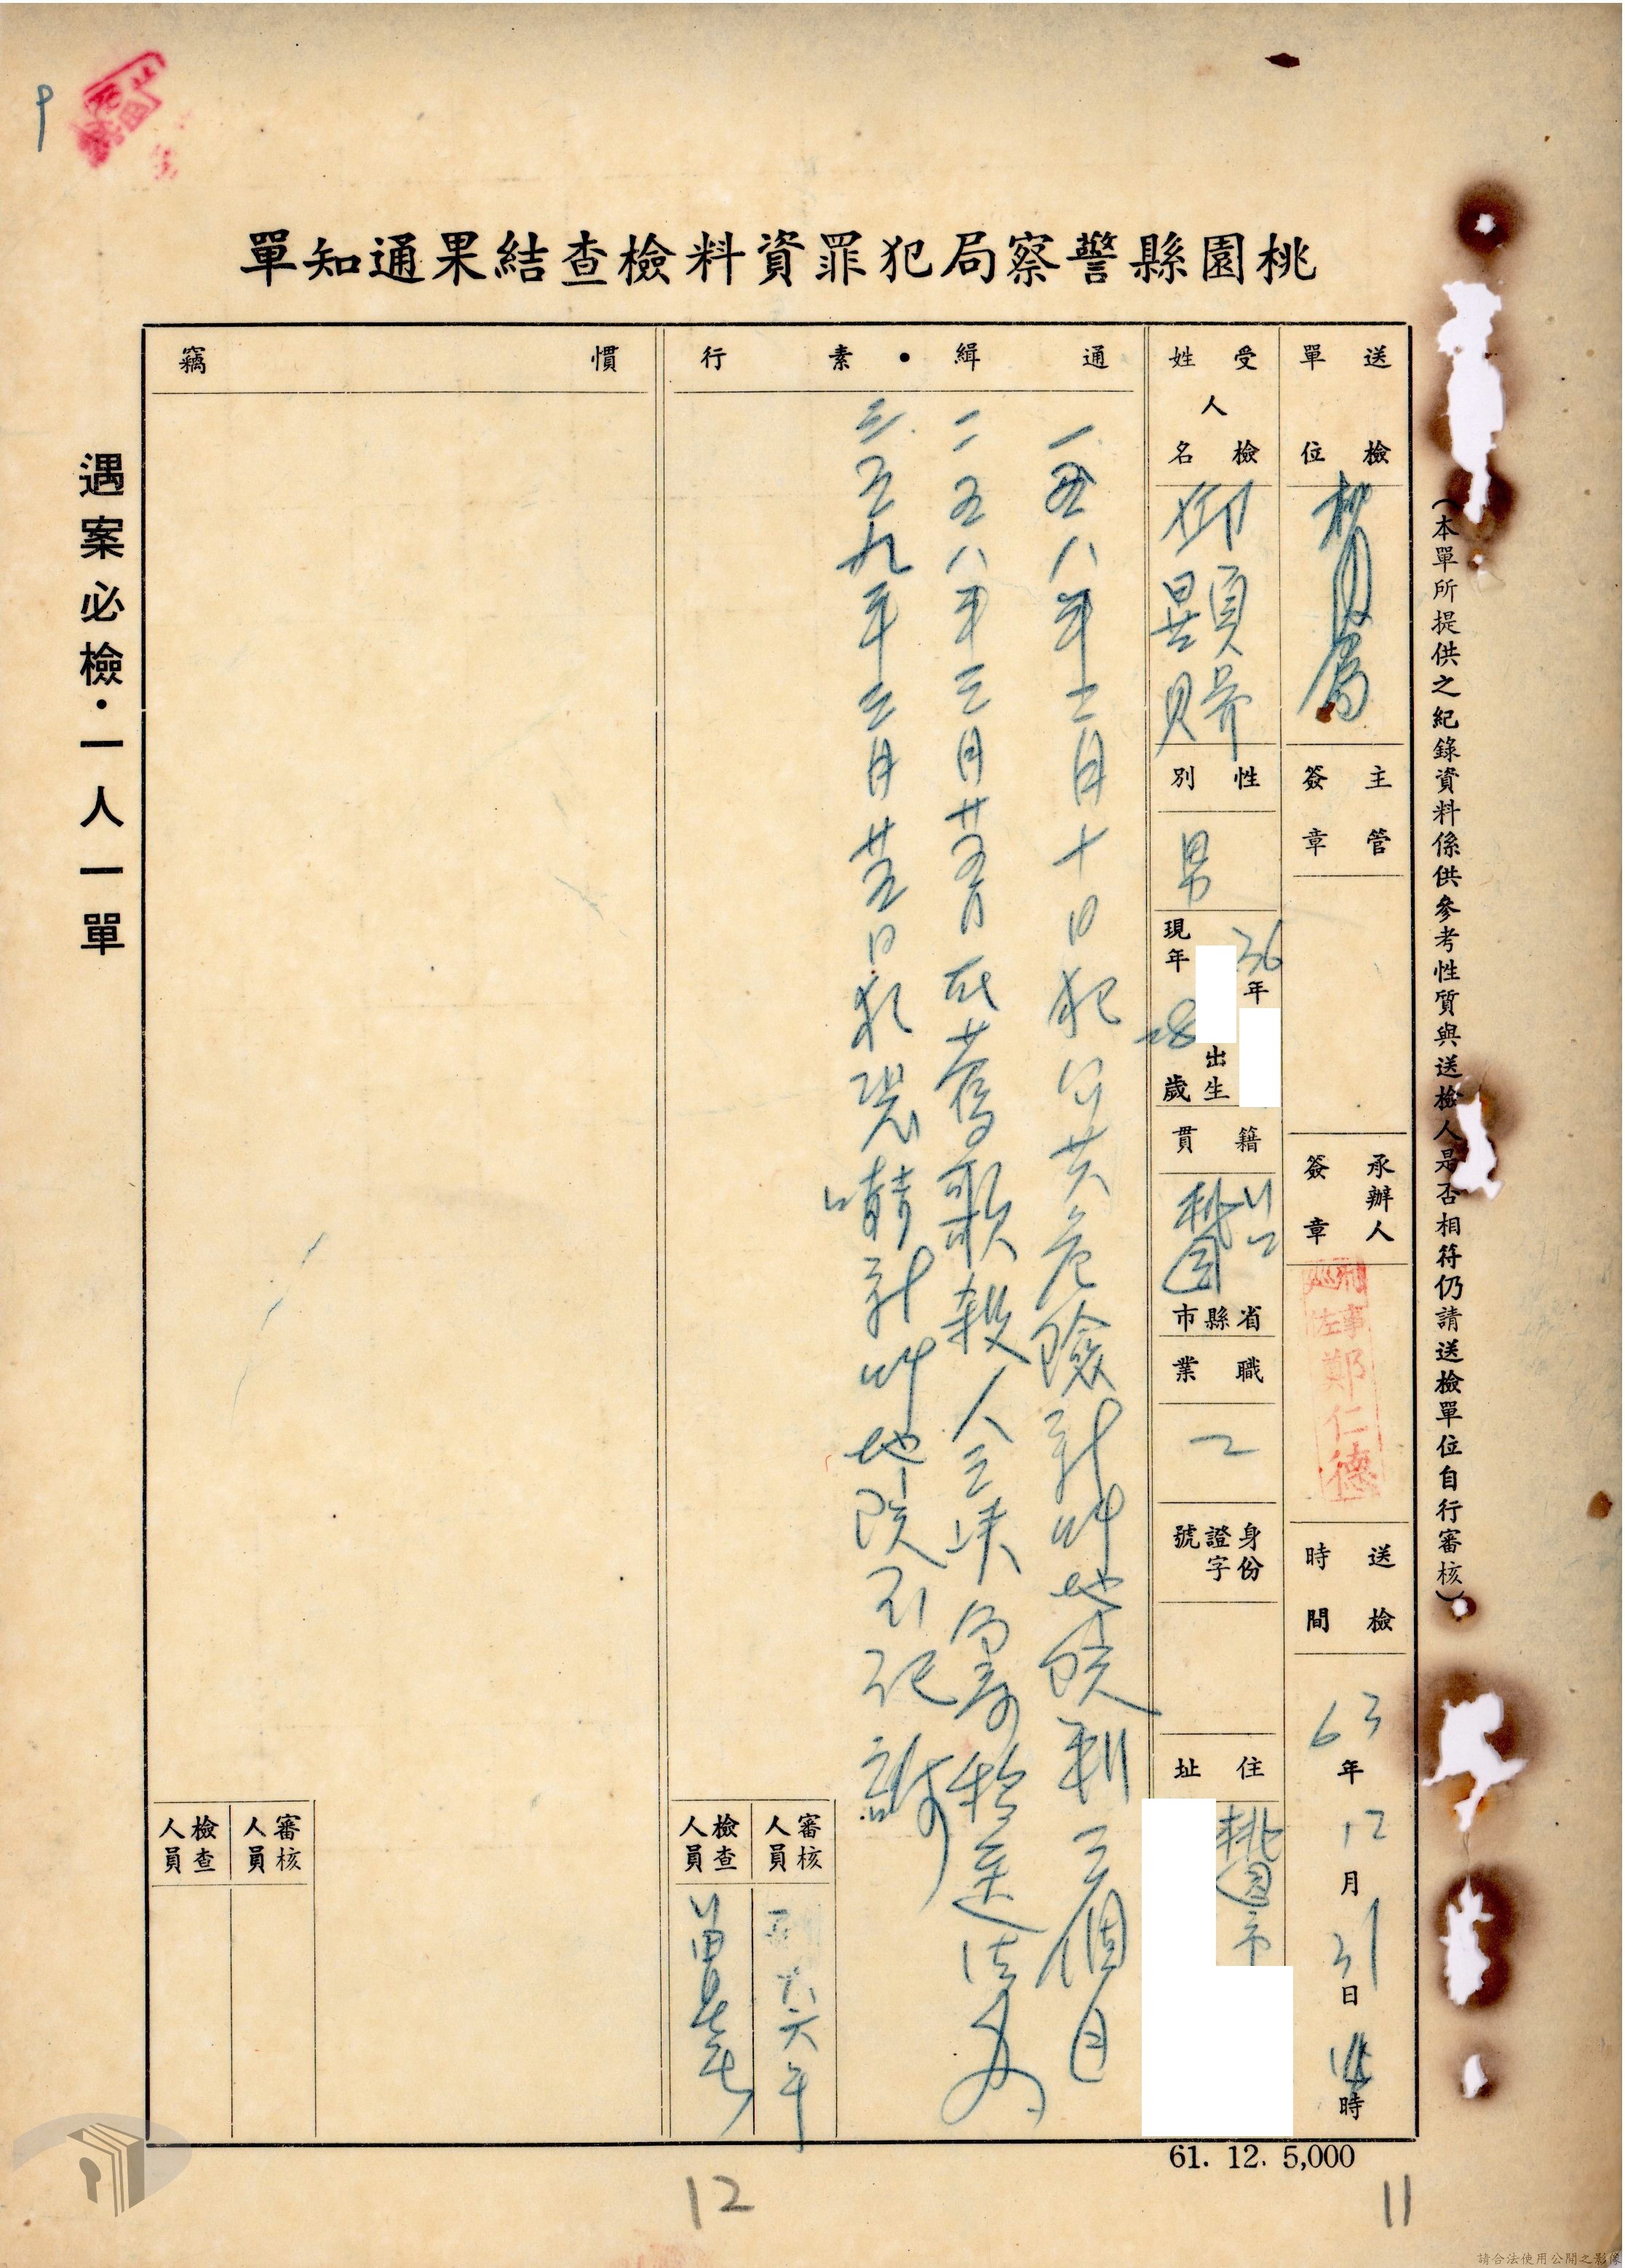 桃園縣警察局犯罪資料檢查結果通知單
（本單所提供之紀錄資料係供參考性質與送檢人是否相符仍請送檢單位自行審核）
送檢單位
主管簽章
承辦人簽章
刑事
鄭仁德
送檢時間
63年12月31日 時
受檢人姓名
邱顯
性別
男
36年
出生
現年28歲
籍貫
桃園
省縣市
職業
工
身份證字號
住址
桃園市
通緝・素行
一五八年二月十日犯公共危險新竹地院判三個月
二五八年三月廿五月在鶯歌殺人三峽分局移送法办
三五九年三月廿五日犯恐嚇新竹地院不起訴
審核人員
檢查人員
慣竊
審核人員
檢查人員
遇案必檢・一人一單
61. 12. 5,000
12
11
請合法使用公開之影像